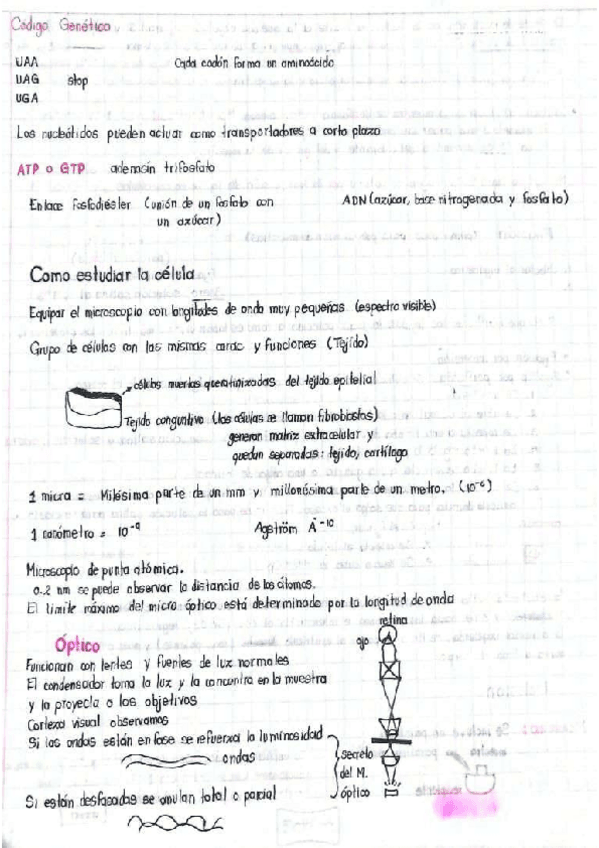 Código Genético
UAA Cada codón forma un aminoácido
UAG stop
UGA
Los nucleótidos pueden actuar como transportadores a corto plazo
ATP o GTP adenosín trifosfato
Enlace Fosfodiéster (unión de un fosfato con ADN (azúcar, base nitrogenada y fosfato)
un azúcar)
Como estudiar la célula
Equipar el microscopio con longitudes de onda muy pequeñas (espectro visible)
Grupo de células con las mismas carac y funciones (Tejido)
células muertas queratinizadas del tejido epitelial
Tejido conguntivo (las células se llaman fibroblastos)
generan matriz extracelular y
quedan separadas: tejido, cartílago
1 micra = Milésima parte de un mm y millonésima parte de un metro. (10⁻⁶)
1 nanómetro = 10⁻⁹ Agström Å⁻¹⁰
Microscopio de punta atómica.
0.2 nm se puede observar la distancia de los átomos.
El límite máximo del micro óptico está determinado por la longitud de onda
retina
ojo
Óptico
Funcionan con lentes y fuentes de luz normales
El condensador toma la luz y la concentra en la muestra
y la proyecta a los objetivos
Corteza visual observamos
Si las ondas están en fase se refuerza la luminosidad
ondas
secreto
del M.
óptico
Si están desfasadas se anulan total o parcial